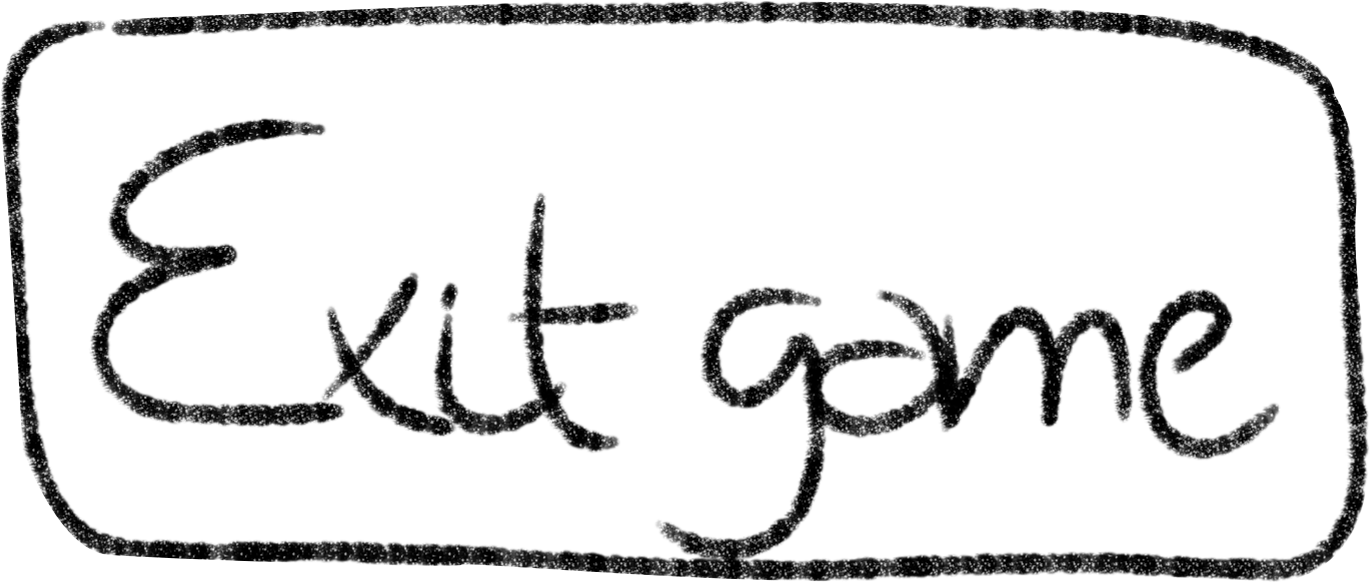 Exit game